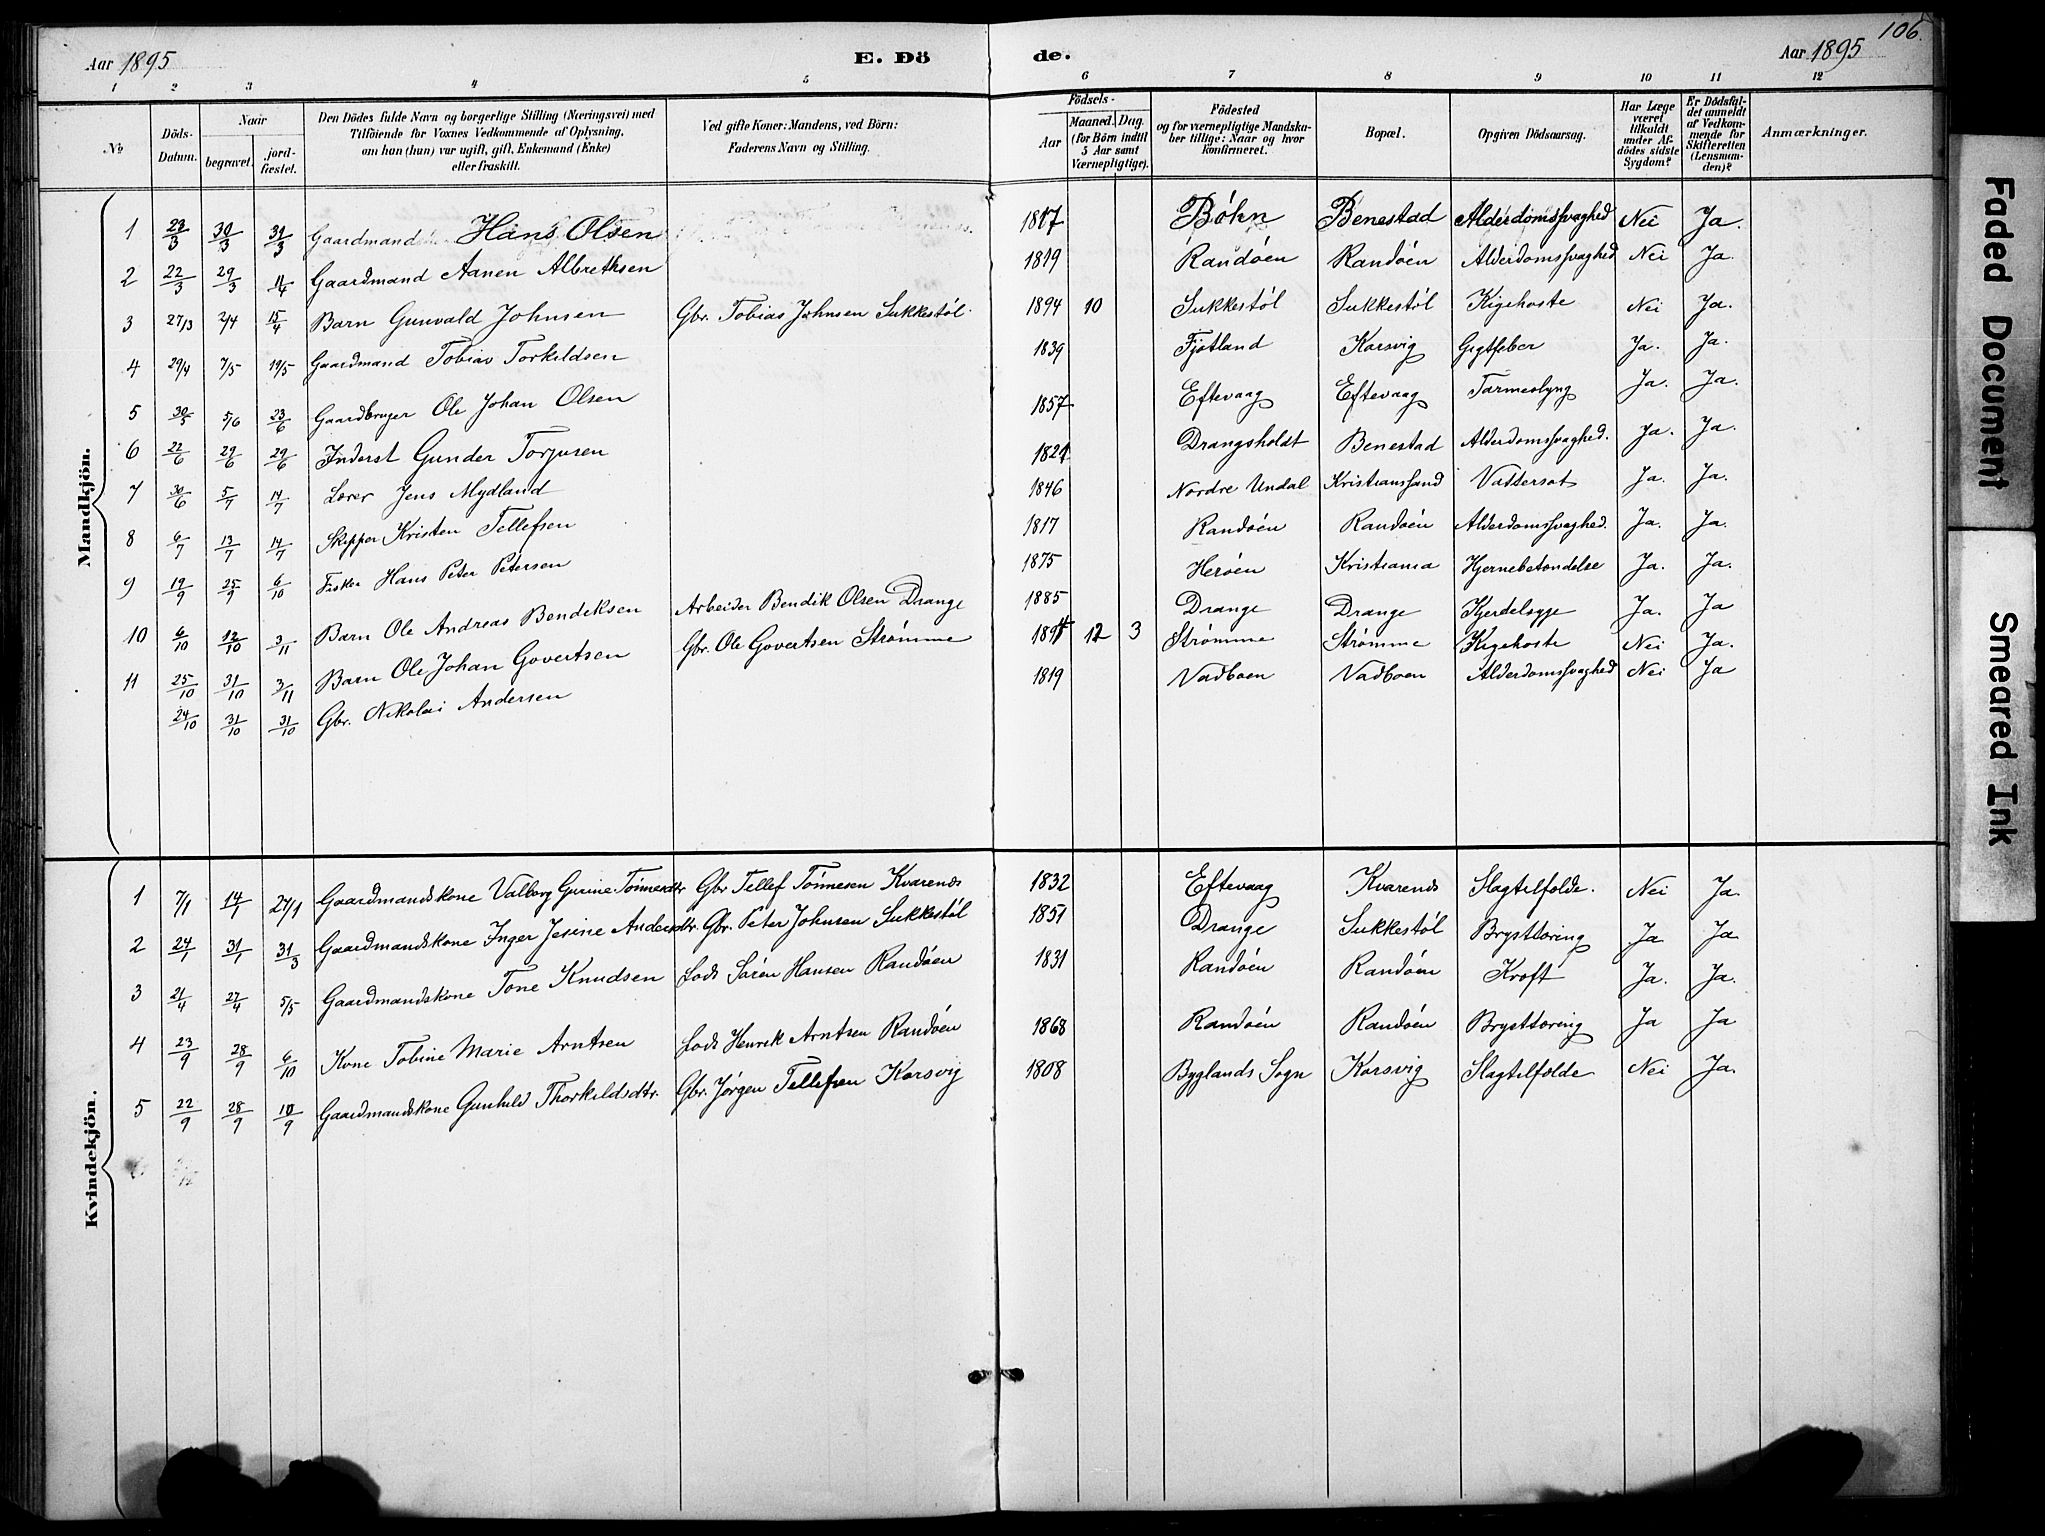 106.
Aar 1895 E. Dö de. Aar 1895
1 2 3 4 5 6 7 8 9 10 11 12
No
Döds-Datum.
Naar
begravet.
jordfæstet.
Den Dödes fulde Navn og borgerlige Stilling (Næringsvei) med
Tilföiende for Voxnes Vedkommende af Oplysning,
om han (hun) var ugift, gift, Enkemand (Enke)
eller fraskilt.
Ved gifte Koner: Mandens, ved Börn:
Faderens Navn og Stilling.
Födsels-
Aar
Maaned. Dag.
(for Börn indtil
5 Aar samt
Værnepligtige).
Födested
og for værnepligtige Mandska-
ber tillige: Naar og hvor
konfirmeret.
Bopæl.
Opgiven Dödsaarsag.
Har Læge
været
tilkaldt
under Af-
dödes sidste
Sygdom?
Er Dödsfal-
det anmeldt
af Vedkom-
mende for
Skifteretten
(Lensman-
den)?
Anmærkninger.
Mandkjön.
1 23/3 30/3 31/3 Gaardmand Hans Olsen 1817 Bøhn Benestad Alderdomssvaghed Nei Ja.
2 22/3 29/3 11/4 Gaardmand Aanen Albrethsen 1819 Randøen Randøen Alderdomssvaghed Nei Ja
3 27/3 2/4 15/4 Barn Gunvald Johnsen Gbr. Tobias Johnsen Sukkestøl. 1894 10 Sukkestøl Sukkestøl Kigehoste Nei Ja.
4 29/4 7/5 19/5 Gaardmand Tobias Torkildsen 1839 Fjotland Korsvig Gigtfeber Ja. Ja.
5 30/5 5/6 23/6 Gaardbruger Ole Johan Olsen 1857 Eftevaag Eftevaag Tarmeslyng Ja. Ja.
6 22/6 29/6 29/6 Inderst Gunder Torjusen 1821 Drangsholdt Benestad Alderdomssvaghed. Ja. Ja.
7 30/6 5/7 14/7 Lærer Jens Mydland 1846 Nordre Undal Kristianssand Vattersot Ja. Ja.
8 6/7 13/7 14/7 Skipper Kristen Tellefsen 1817 Randøen Randøen Alderdomssvaghed. Ja. Ja.
9 19/9 25/9 6/10 Fisker Hans Peter Petersen 1875 Herøen Kristiania Hjernebetændelse Ja. Ja.
10 6/10 12/10 3/11 Barn Ole Andreas Bendiksen Arbeider Bendik Olsen Drange 1885 Drange Drange Hjertelsyge Ja. Ja
11 25/10 31/10 3/11 Barn Ole Johan Govertsen Gbr. Ole Govertsen Strømme 1894 12 3 Strømme Strømme Kigehoste Nei Ja.
24/10 31/10 31/10 Gbr. Nikolai Andersen 1819 Vadboen Vadboen Alderdomssvaghed Nei Ja
Kvindekjön.
1 7/1 14/1 27/1 Gaardmandskone Valborg Gurine Tønnesdtr Gbr Tellef Tønnesen Kvarenes 1832 Eftevaag Kvarenes Slagtilfælde. Nei Ja.
2 24/1 31/1 31/3 Gaardmandskone Inger Jesine Andersdtr. Gbr. Peter Johnsen Sukkestøl 1851 Drange Sukkestøl Brysttæring Ja Ja
3 21/4 27/4 5/5 Gaardmandskone Tone Knudsen Lods Søren Hansen Randøen 1831 Randøen Randøen Kræft Ja. Ja.
4 23/9 28/9 6/10 Kone Tobine Marie Arntsen Lods Henrik Arntsen Randøen 1868 Randøen Randøen Brysttæring Ja Ja
5 22/9 28/9 10/9 Gaardmandskone Gunhild Thorkildsdtr. Gbr. Jørgen Tellefsen Korsvig 1808 Byglands Sogn Korsvig Slagtilfælde Nei Ja.
Faded Document
Smeared Ink